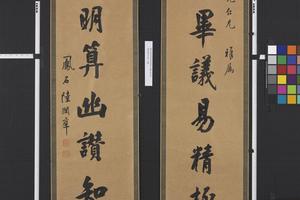 仁兄 雅屬
畢議易精極
明算幽讚知
鳳石陸潤庠